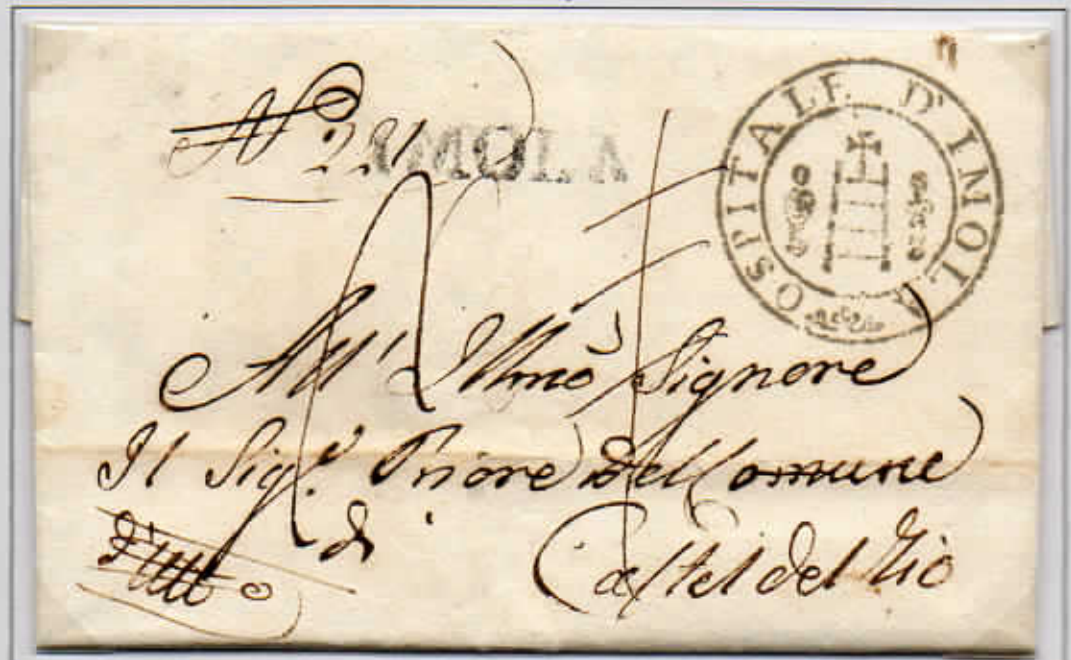 N.° 221
IMOLA
OSPITALE D' IMOLA
All' Illmo Signore
Il Sig.r Priore del Comune
di Castel del Rio